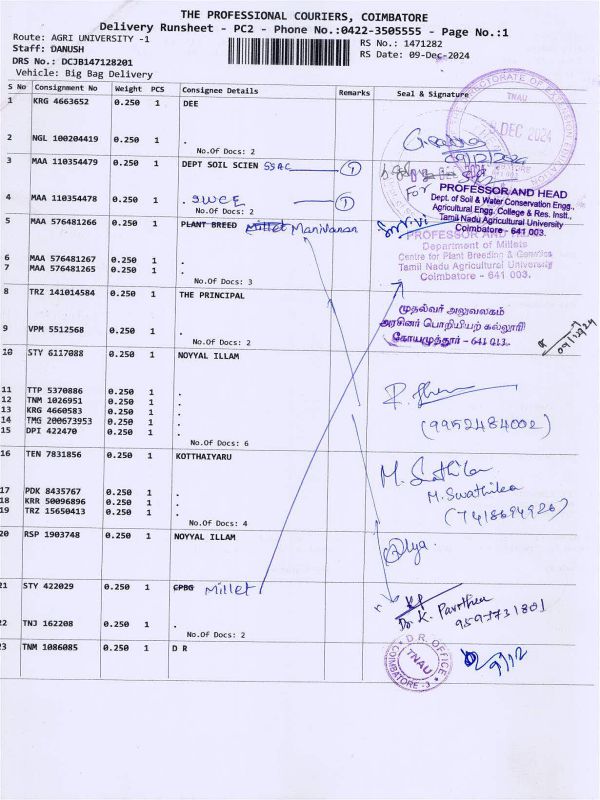 THE PROFESSIONAL COURIERS, COIMBATORE
Delivery Runsheet - PC2 - Phone No.:0422-3505555 - Page No.:1
Route: AGRI UNIVERSITY -1
RS No.: 1471282
Staff: DANUSH
RS Date: 09-Dec-2024
DRS No.: DCJB147128201
Vehicle: Big Bag Delivery
S No Consignment No Weight PCS Consignee Details Remarks Seal & Signature
1 KRG 4663652 0.250 1 DEE
2 NGL 100204419 0.250 1 .
No.Of Docs: 2
DIRECTORATE OF EXTENSION EDUCATION
TNAU
9 DEC 2024
09/12/2024
3 MAA 110354479 0.250 1 DEPT SOIL SCIEN SSAC 1
4 MAA 110354478 0.250 1 . SWCE 1
No.Of Docs: 2
For
PROFESSOR AND HEAD
Dept. of Soil & Water Conservation Engg.,
Agricultural Engg. College & Res. Instt.,
Tamil Nadu Agricultural University
Coimbatore - 641 003.
5 MAA 576481266 0.250 1 PLANT BREED Millet Manivanan
6 MAA 576481267 0.250 1 .
7 MAA 576481265 0.250 1 .
No.Of Docs: 3
PROFESSOR AND
Department of Millets
Centre for Plant Breeding & Genetics
Tamil Nadu Agricultural University
Coimbatore - 641 003.
8 TRZ 141014584 0.250 1 THE PRINCIPAL
9 VPM 5512568 0.250 1 .
No.Of Docs: 2
முதல்வர் அலுவலகம்
அரசினர் பொறியியற் கல்லூரி
கோயமுத்தூர் - 641 013.
09/12/24
10 STY 6117088 0.250 1 NOYYAL ILLAM
11 TTP 5370886 0.250 1 .
12 TNM 1026951 0.250 1 .
13 KRG 4660583 0.250 1 .
14 TMG 200673953 0.250 1 .
15 DPI 422470 0.250 1 .
No.Of Docs: 6
(9952484002)
16 TEN 7831856 0.250 1 KOTTHAIYARU
17 PDK 8435767 0.250 1 .
18 KRR 50096896 0.250 1 .
19 TRZ 15650413 0.250 1 .
No.Of Docs: 4
M. Swathika
M. Swathika
(7418694926)
20 RSP 1903748 0.250 1 NOYYAL ILLAM
21 STY 422029 0.250 1 CPBG Millet
22 TNJ 162208 0.250 1 .
No.Of Docs: 2
Dr. K. Pavithra
9597731801
23 TNM 1086085 0.250 1 D R
D.R. OFFICE
TNAU
COIMBATORE - 3
9/12